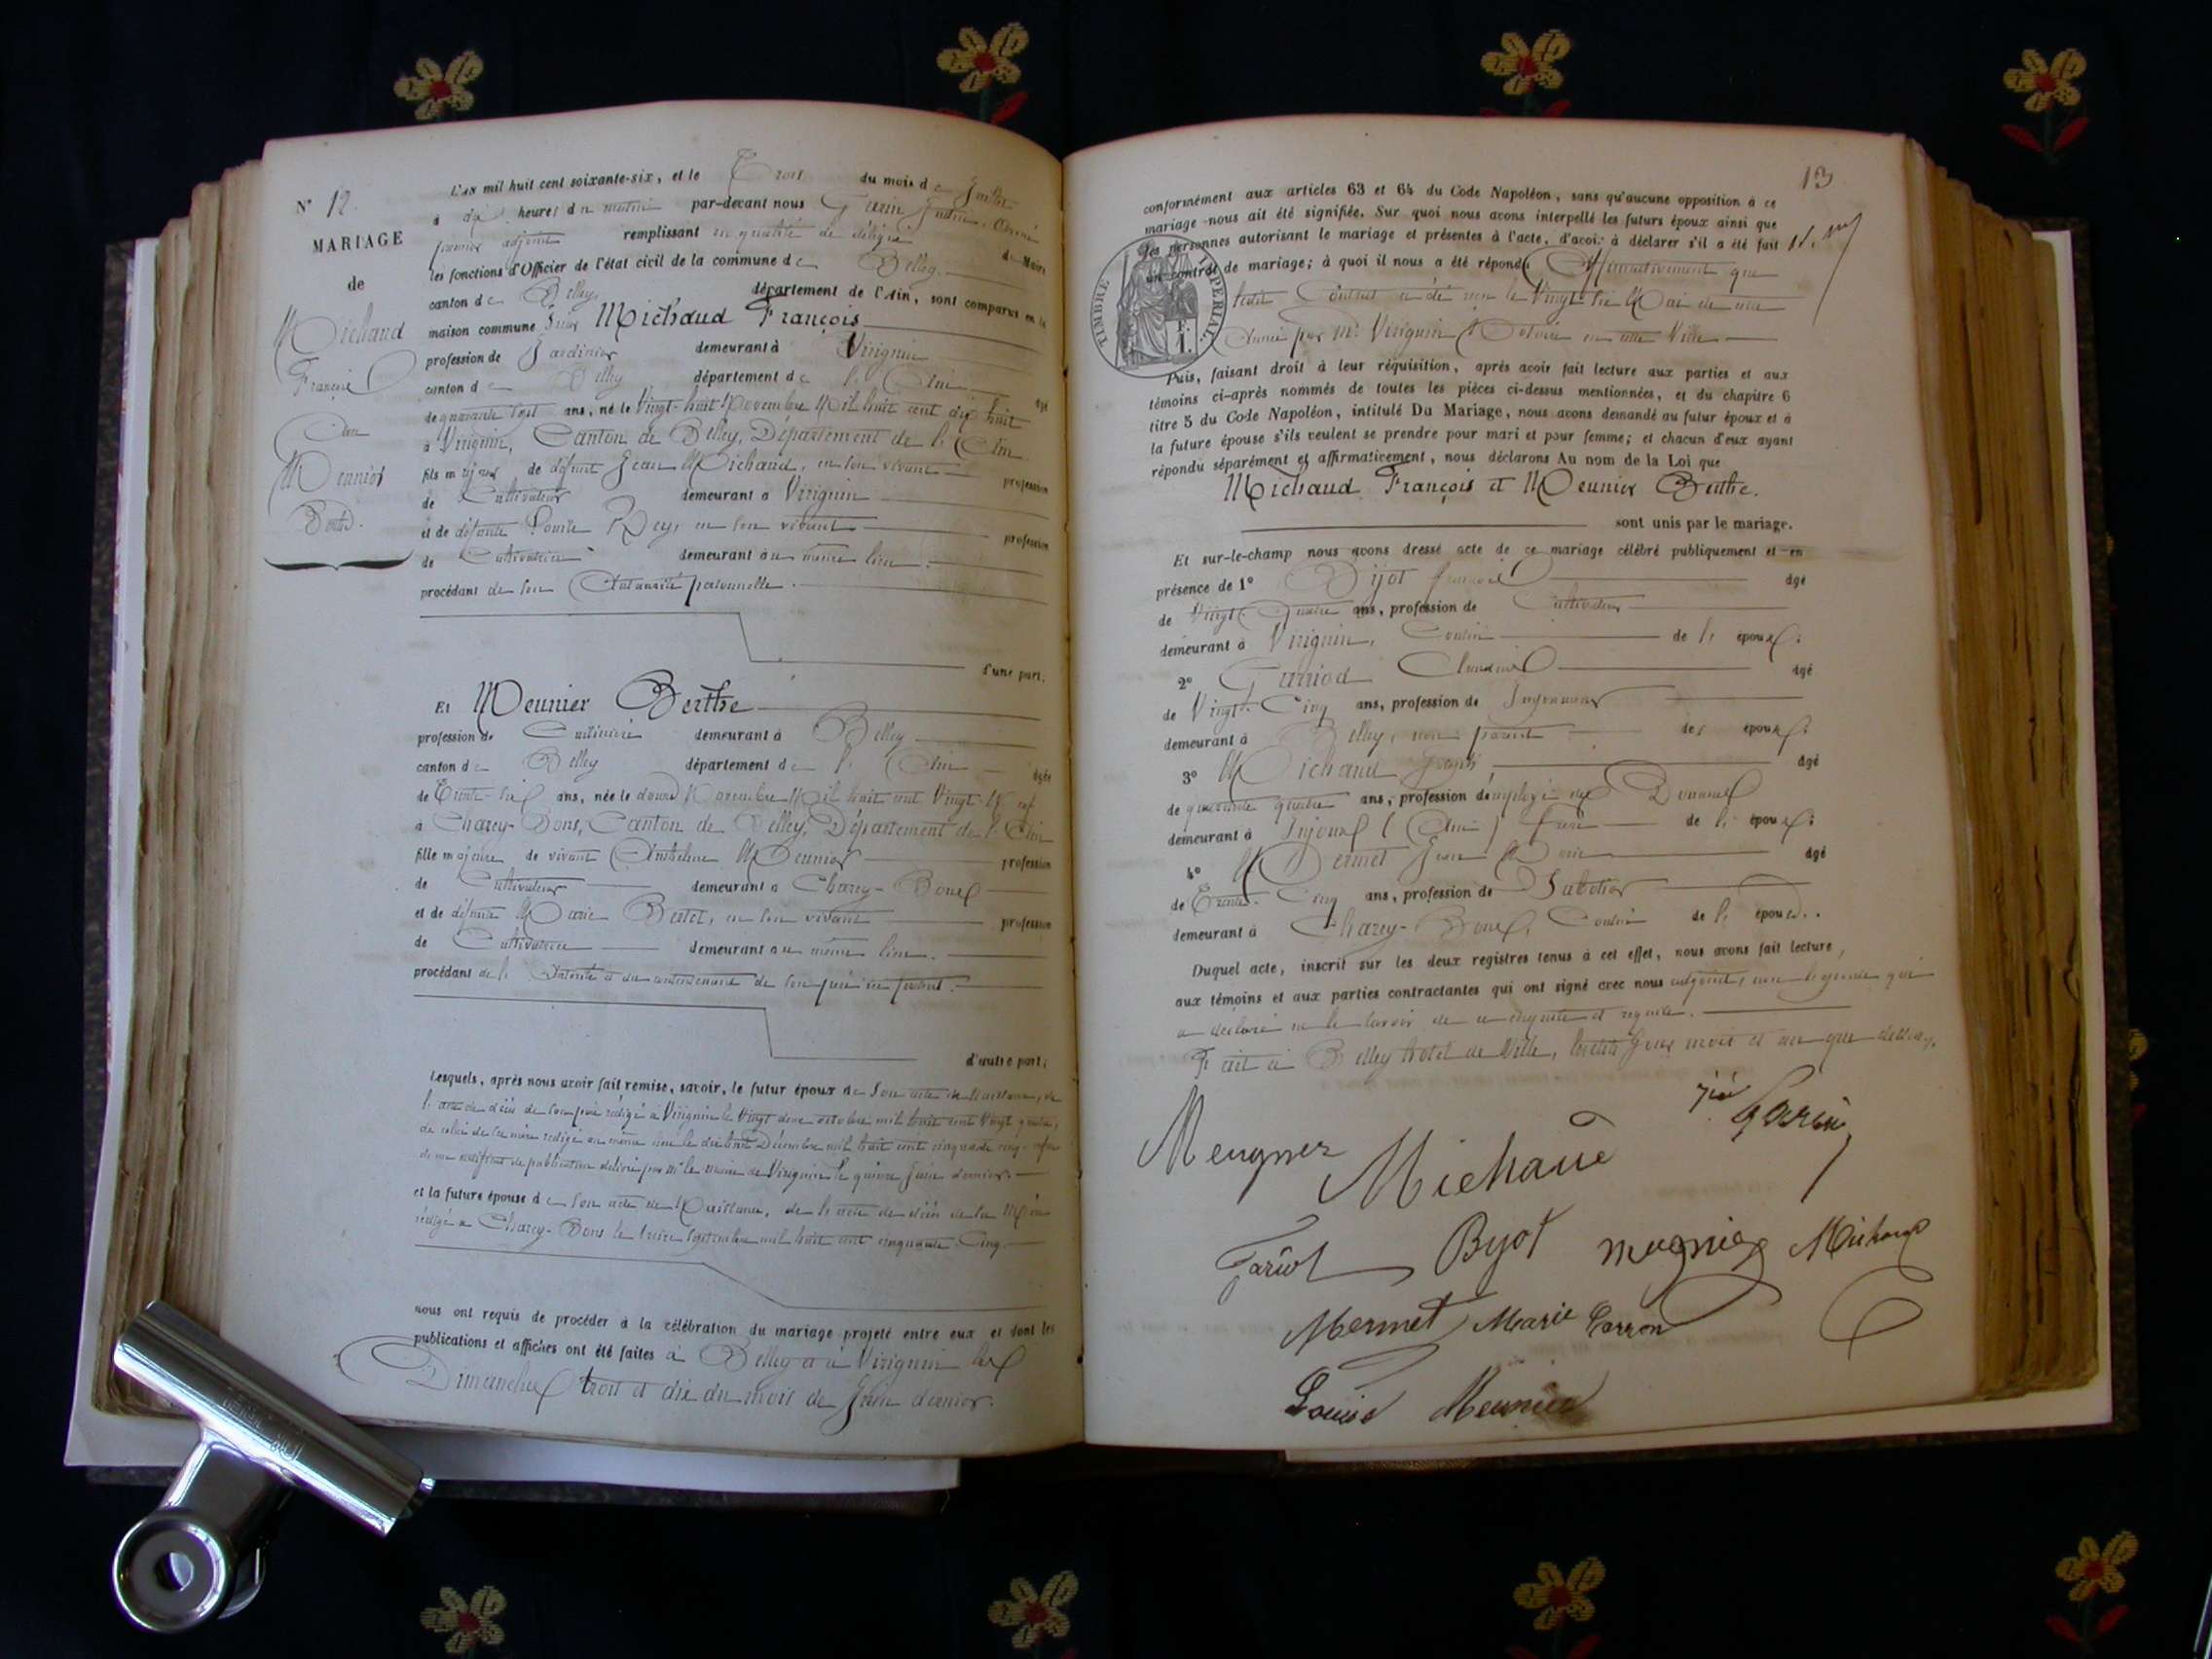 N° 12.
MARIAGE
de
Michaud
François
Meunier
Berthe.
L'AN mil huit cent soixante-six, et le Trois du mois de Juillet
à dix heures du matin par-devant nous
premier adjoint remplissant en qualité de délégué du Maire
les fonctions d'Officier de l'état civil de la commune de Belley
canton de Belley, département de l'Ain, sont comparus en la
maison commune Michaud François
profession de Jardinier demeurant à Virignin
canton de Belley département de l'Ain âgé
de quarante sept ans, né le Vingt-huit Novembre Mil huit cent dix huit
à Virignin, Canton de Belley, Département de l'Ain
fils majeur de défunt Jean Michaud, en son vivant profession
de Cultivateur demeurant à Virignin
et de défunte Rey, en son vivant profession
de Cultivatrice demeurant au même lieu.
procédant de son Autorité personnelle.
d'une part.
Et Meunier Berthe
profession de Cuisinière demeurant à Belley
canton de Belley département de l'Ain âgée
de Trente-six ans, née le douze Novembre Mil huit cent Vingt-Neuf
à Charey-Bons, Canton de Belley, Département de l'Ain
fille majeure de vivant Anthelme Meunier profession
de Cultivateur demeurant à Charey-Bons
et de défunte Marie Bertet, en son vivant profession
de Cultivatrice demeurant au même lieu.
procédant de l'Autorité et du consentement de son père ici présent.
d'autre part;
Lesquels, après nous avoir fait remise, savoir, le futur époux de son acte de Naissance, de
l'acte de décès de son père rédigé à Virignin le Vingt deux octobre mil huit cent Vingt quatre,
de celui de sa mère rédigé au même lieu le dix huit Décembre mil huit cent cinquante cinq, enfin
de un certificat de publication délivré par Mr le maire de Virignin le quinze Juin dernier.
et la future épouse de son acte de Naissance, de l'acte de décès de sa Mère
rédigé à Charey-Bons le treize Septembre mil huit cent cinquante Cinq.
nous ont requis de procéder à la célébration du mariage projeté entre eux et dont les
publications et affiches ont été faites à Belley et à Virignin les
Dimanches trois et dix du mois de Juin dernier.
13
conformément aux articles 63 et 64 du Code Napoléon, sans qu'aucune opposition à ce
mariage nous ait été signifiée. Sur quoi nous avons interpellé les futurs époux ainsi que
les personnes autorisant le mariage et présentes à l'acte, d'avoir à déclarer s'il a été fait
un contrat de mariage; à quoi il nous a été répondu Affirmativement que
ledit Contrat a été reçu le Vingt six Mai de cette
Année par Mr. Virignin Notaire en cette Ville
TIMBRE IMPERIAL
Puis, faisant droit à leur réquisition, après avoir fait lecture aux parties et aux
témoins ci-après nommés de toutes les pièces ci-dessus mentionnées, et du chapitre 6
titre 5 du Code Napoléon, intitulé Du Mariage, nous avons demandé au futur époux et à
la future épouse s'ils veulent se prendre pour mari et pour femme; et chacun d'eux ayant
répondu séparément et affirmativement, nous déclarons Au nom de la Loi que
Michaud François et Meunier Berthe.
sont unis par le mariage.
Et sur-le-champ nous avons dressé acte de ce mariage célébré publiquement et en
présence de 1° Bijot François âgé
de Vingt Quatre ans, profession de Cultivateur
demeurant à Virignin, Cousin de l'époux;
2° Claudius âgé
de Vingt-Cinq ans, profession de
demeurant à Belley, non parent des époux;
3° Michaud âgé
de quarante quatre ans, profession d'employé aux Douanes
demeurant à Injoux (Ain) frère de l'époux;
4° Mermet Jean Marie âgé
de Trente-Cinq ans, profession de Sabotier
demeurant à Charey-Bons, Cousin de l'épouse.
Duquel acte, inscrit sur les deux registres tenus à cet effet, nous avons fait lecture,
aux témoins et aux parties contractantes qui ont signé avec nous adjoint, non l'épouse qui
a déclaré ne le savoir de ce enquise et requise.
Fait à Belley hotel de Ville, lesdits Jour mois et an que dessus.
Meugnier
Michaud
Garin
Byot
Michaud
Mermet
Marie Carron
Louise Meunier